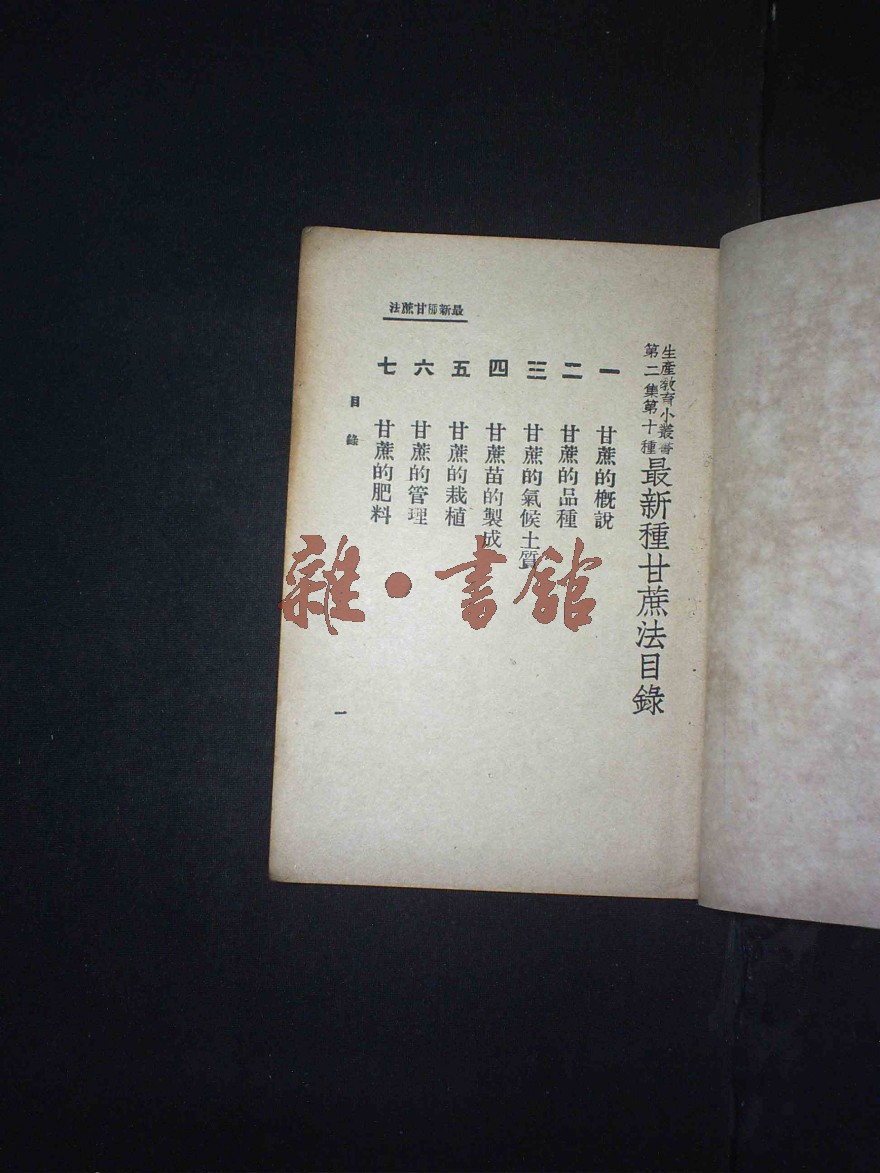 生產教育小叢書
第二集第十種
最新種甘蔗法目錄
一 甘蔗的概說
二 甘蔗的品種
三 甘蔗的氣候土質
四 甘蔗苗的製成
五 甘蔗的栽植
六 甘蔗的管理
七 甘蔗的肥料
最新種甘蔗法
目錄
一
雜·書館